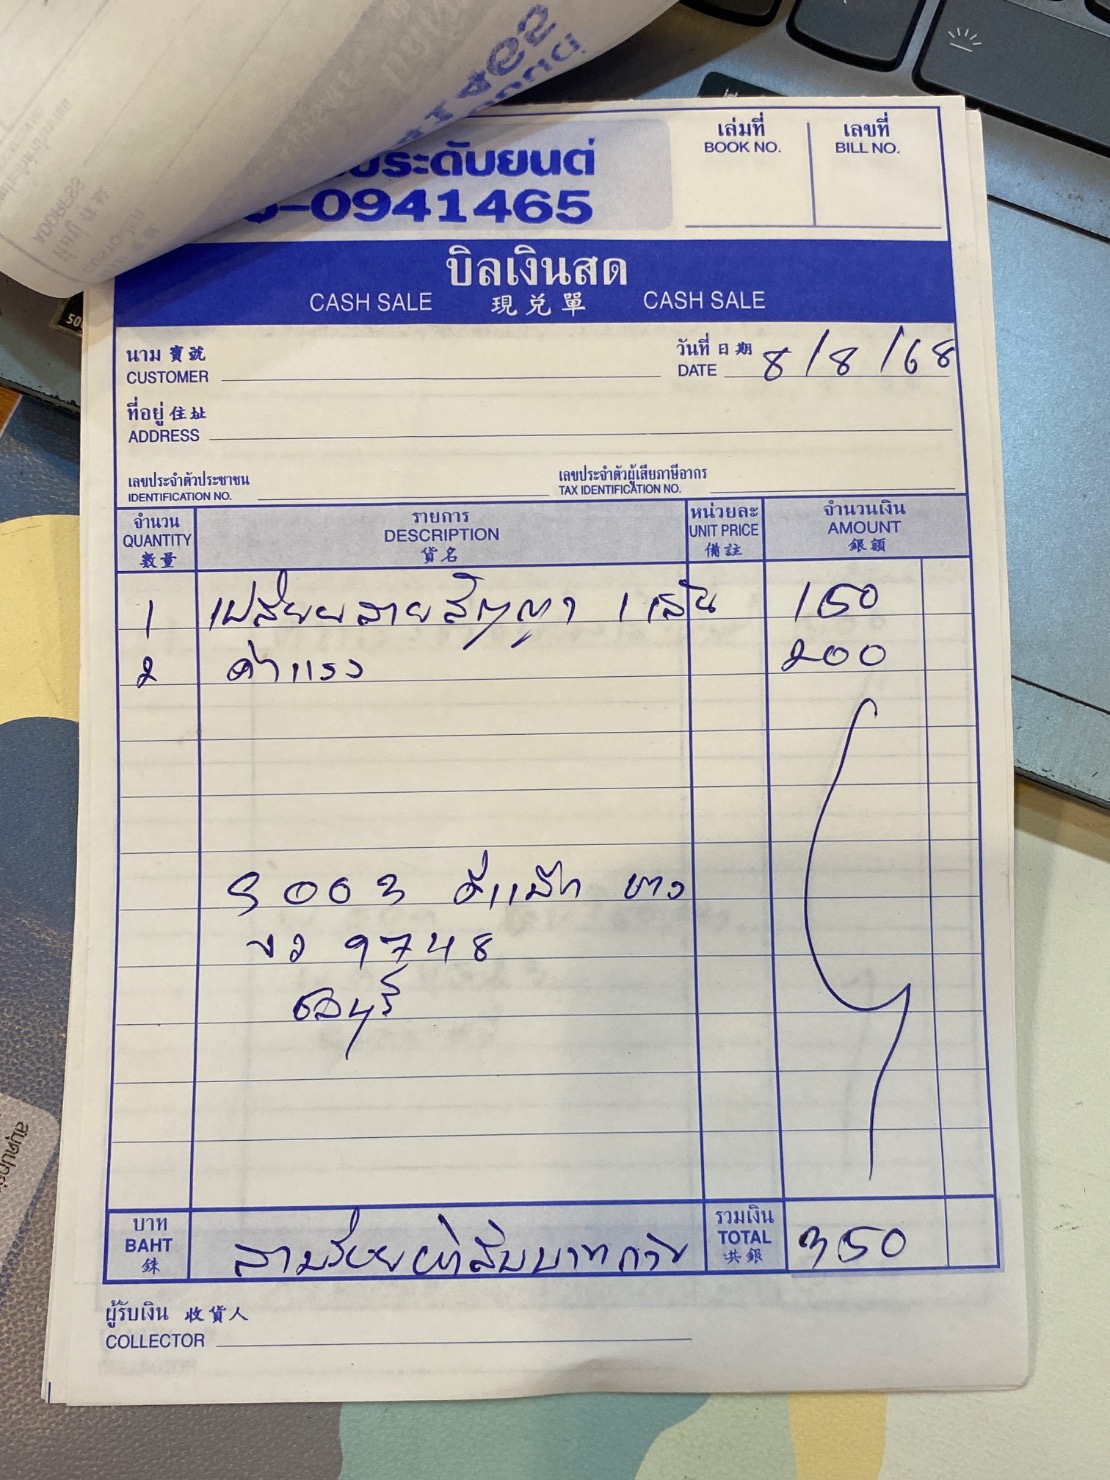 ประดับยนต์
-0941465
เล่มที่
BOOK NO.
เลขที่
BILL NO.
บิลเงินสด
CASH SALE 現兌單 CASH SALE
นาม 寶號
CUSTOMER
วันที่ 日期
DATE 8/8/68
ที่อยู่ 住址
ADDRESS
เลขประจำตัวประชาชน
IDENTIFICATION NO.
เลขประจำตัวผู้เสียภาษีอากร
TAX IDENTIFICATION NO.
จำนวน
QUANTITY
數量
รายการ
DESCRIPTION
貨名
หน่วยละ
UNIT PRICE
備註
จำนวนเงิน
AMOUNT
銀額
1 เปลี่ยนสายสัญญา 1 เส้น 150
2 ค่าแรง 200
9748
ชลบุรี
บาท
BAHT
銖
สามร้อยห้าสิบบาทถ้วน
รวมเงิน
TOTAL
共銀
350
ผู้รับเงิน 收貨人
COLLECTOR